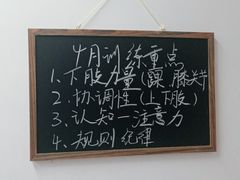 4月训练重点
1、下肢力量(踝 膝关节
2、协调性(上下肢)
3、认知—注意力
4、规则 纪律